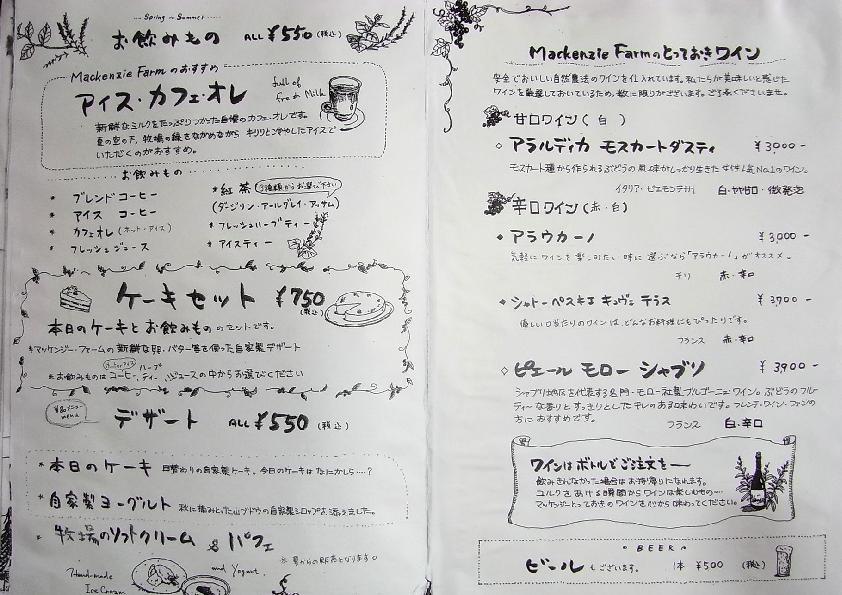 Spring ~ Summer
お飲みもの ALL ¥550 (税込)
Mackenzie Farm のおすすめ
アイス・カフェ・オレ
full of fresh Milk
新鮮なミルクをたっぷりつかった自慢のカフェ・オレです。
夏の空の下、牧場の緑をながめながら キリリと冷やしたアイスで
いただくのがおすすめ。
お飲みもの
* ブレンド コーヒー
* アイス コーヒー
* カフェオレ (ホット・アイス)
* フレッシュジュース
* 紅茶 (3種類からお選び下さい)
(ダージリン・アールグレイ・アッサム)
* フレッシュハーブティー
* アイスティー
ケーキセット ¥750 (税込)
本日のケーキとお飲みもののセットです。
* マッケンジー・ファームの新鮮な卵・バター等を使った自家製デザート
* お飲みものはコーヒー、ティー、ジュースの中からお選びください
ハーブ
menu
デザート ALL ¥550 (税込)
* 本日のケーキ 日替わりの自家製ケーキ。今日のケーキは なにかしら…?
* 自家製ヨーグルト 秋に摘みとった山ブドウの自家製シロップを添えました。
* 牧場のソフトクリーム & パフェ
Hand-made
Ice Cream
and Yogurt.
Mackenzie Farmのとっておきワイン
安全でおいしい自然農法のワインを仕入れています。私たちが美味しいと感じた
ワインを厳選しておいているため、数に限りがございます。ご了承くださいませ。
甘口ワイン (白)
◇ アラルディカ モスカートダスティ ¥3,000-
モスカート種から作られるぶどうの風味がしっかり生きた 女性人気No.1のワイン。
イタリア・ピエモンテ州 白・やや甘口・微発泡
辛口ワイン (赤・白)
◆ アラウカーノ ¥3,000-
気軽にワインを楽しみたい時に選ぶなら「アラウカーノ」がオススメ。
チリ 赤・辛口
◆ シャトーペスキエ キュヴェ テラス ¥3,700-
優しい口当たりのワインは、どんなお料理にもぴったりです。
フランス 赤・辛口
◇ ピエール モロー シャブリ ¥3,900-
シャブリ地区を代表する名門・モロー社製ブルゴーニュ・ワイン。ぶどうのフルー
ティーな香りと すっきりとしたキレのある味わいです。フレンチ・ワイン・ファンの
方におすすめです。
フランス 白・辛口
ワインはボトルでご注文を―
飲みきれなかった場合はお持ち帰りになれます。
コルクをあける瞬間からワインは楽しむもの…
マッケンジーとっておきのワインを心から味わってください。
BEER
ビール もございます。 1本 ¥500 (税込)